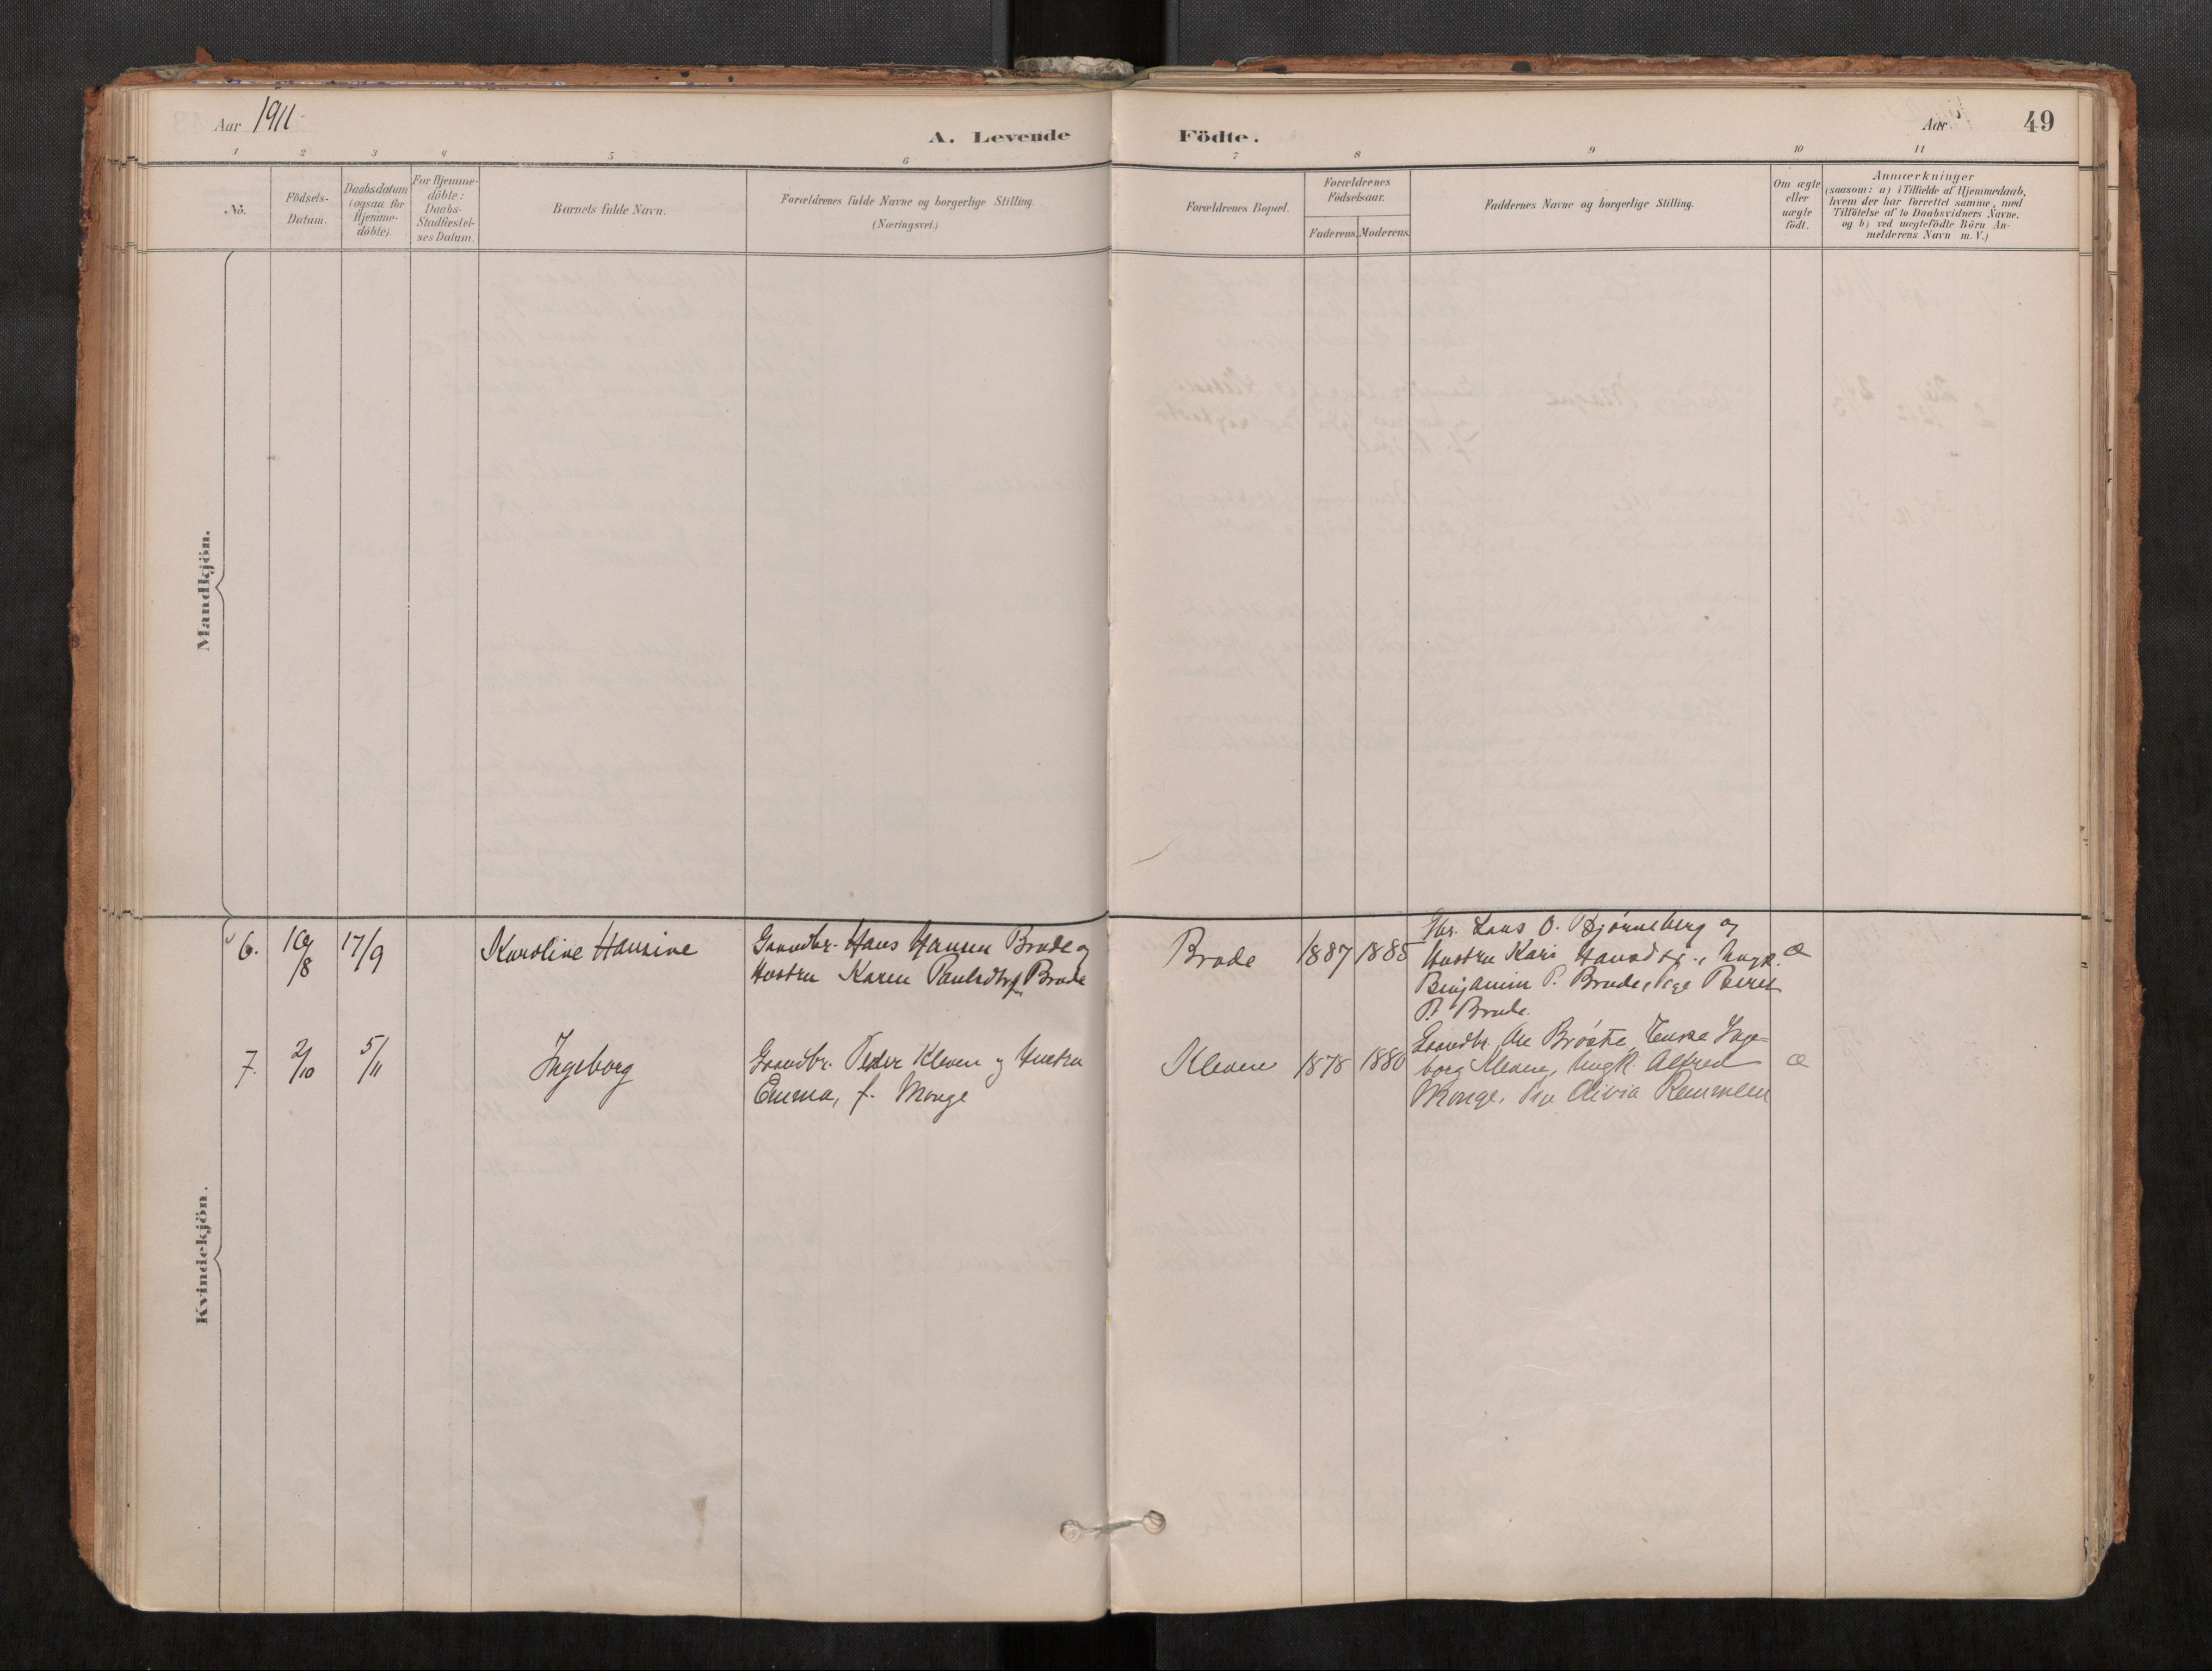 Aar 1911
A. Levende Födte.
Aar
49
1 2 3 4 5 6 7 8 9 10 11
No.
Födsels-
Datum.
Daabsdatum
(ogsaa for
Hjemme-
döbte).
For Hjemme-
döbte:
Daabs-
Stadfæstel-
ses Datum.
Barnets fulde Navn.
Forældrenes fulde Navne og borgerlige Stilling.
(Næringsvei.)
Forældrenes Bopæl.
Forældrenes
Födselsaar.
Faderens. Moderens.
Faddernes Navne og borgerlige Stilling.
Om ægte
eller
uægte
födt.
Anmærkninger
(saasom: a) i Tilfælde af Hjemmedaab,
hvem der har forrettet samme, med
Tilföielse af to Daabsvidners Navne.
og b) ved uægtefödte Börn An-
melderens Navn m. V.)
Mandkjön.
Kvindekjön.
6. 16/8 17/9 Karoline Hansine
Gaardbr. Hans Hansen Brude og
Hustru Karen Paulsdtr Brude
Brude 1887 1885
Gbr. Lars O. Bjørneberg og
Hustru Kari Hansdtr., Ungk.
Benjamin P. Brude, Pige Beret
P. Brude.
Æ
7. 2/10 5/11 Ingeborg
Gaardbr. Peder Kleven og Hustru
Emma, f. Monge
Kleven 1878 1880
Gaardbr. Ole Brøste, Enke Inge-
borg Kleven, Ungk. Alfred
Monge, Pige Olivia Remmem
Æ